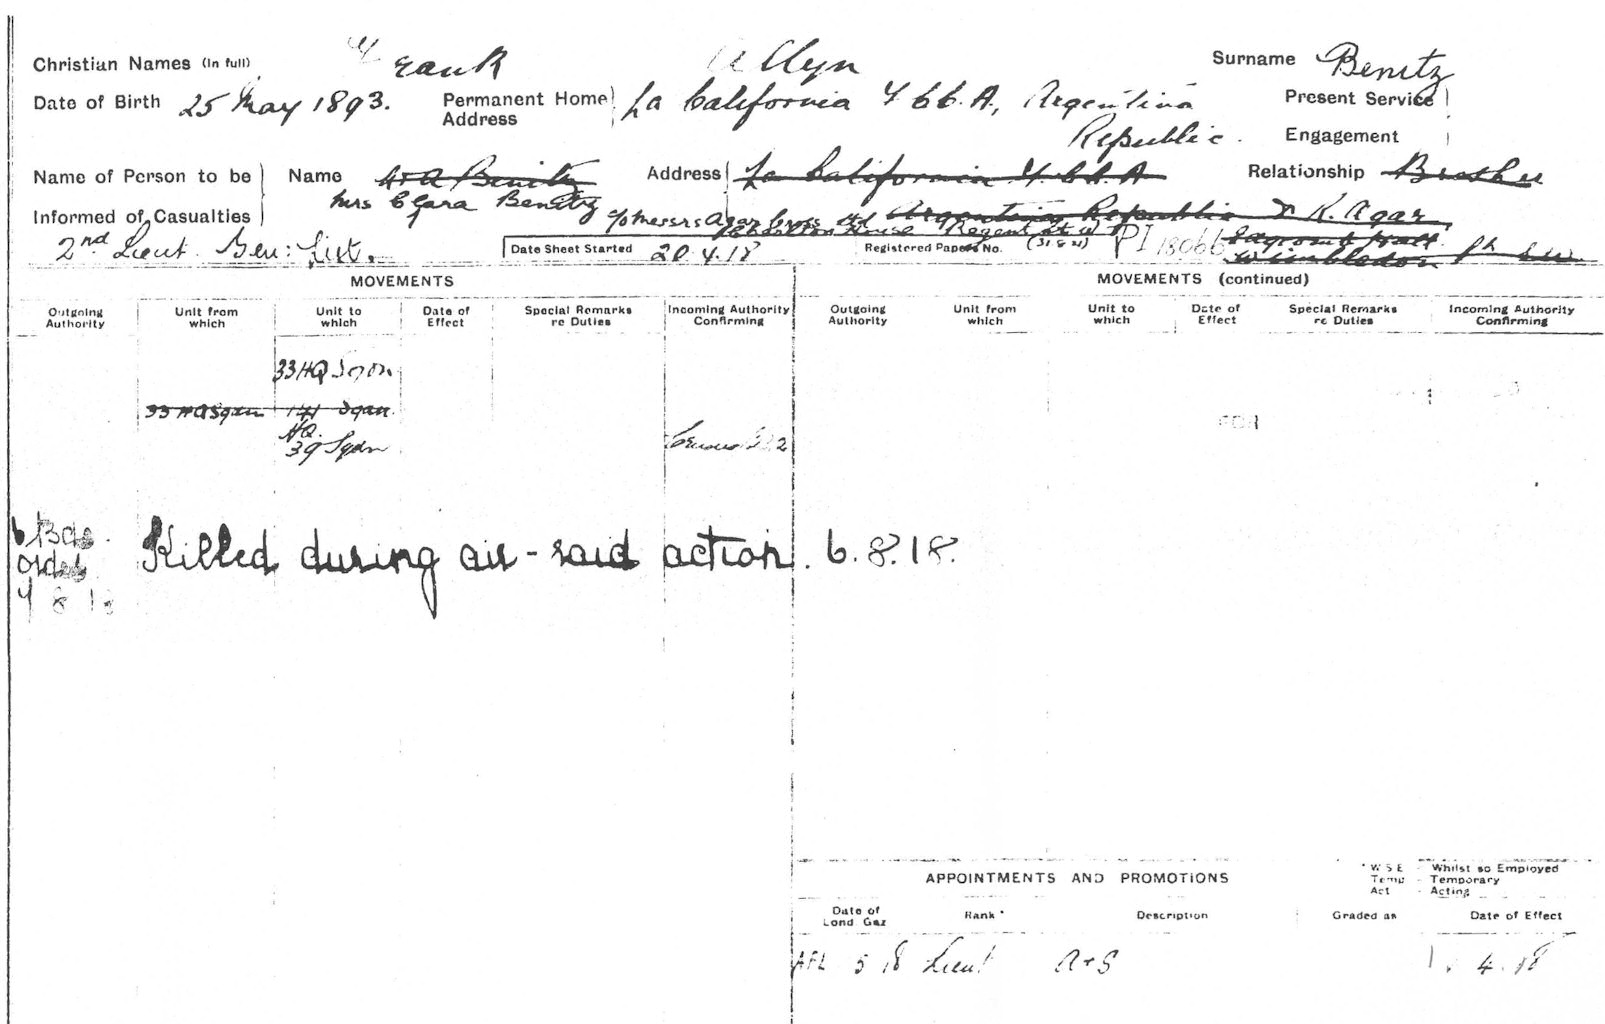 Christian Names (in full) Frank Allyn Surname Benitz
Date of Birth 25 May 1893. Permanent Home Address La California F CC. A, Argentina Present Service
Republic. Engagement
Name of Person to be Informed of Casualties Name W A Benitz Address La California F. CC. A Relationship Brother
Mrs Clara Benitz c/o Messrs Agar Cross Ltd Argentina Republic K. Agar
2nd Lieut. Gen: List. House Regent St W (31.8.21)
Date Sheet Started 20.4.18 Registered Papers No. PI 18066 Hall Wimbledon
MOVEMENTS MOVEMENTS (continued)
Outgoing Authority Unit from which Unit to which Date of Effect Special Remarks re Duties Incoming Authority Confirming Outgoing Authority Unit from which Unit to which Date of Effect Special Remarks re Duties Incoming Authority Confirming
33 HQ Sqdn
33 HQ Sqdn 141 Sqdn.
HQ.
39 Sqdn
6 Bde.
Orders Killed during air-raid action. 6.8.18.
7 8 18
APPOINTMENTS AND PROMOTIONS
W S E - Whilst so Employed
Temp - Temporary
Act - Acting
Date of Lond Gaz Rank * Description Graded as Date of Effect
AFL 5 18 Lieut A+S 1.4.18